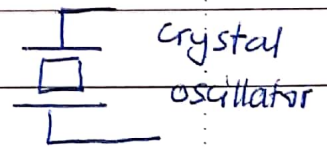 crystal
oscillator